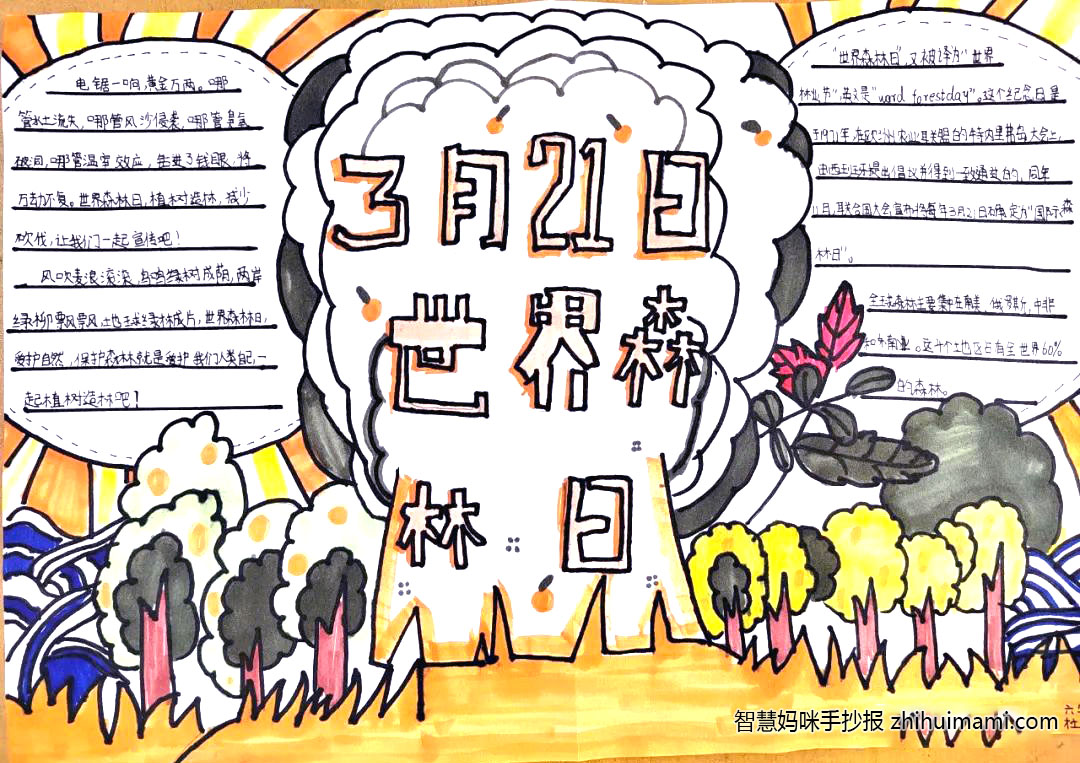 电锯一响,黄金万两。哪
管水土流失,哪管风沙侵袭,哪管臭氧
破洞,哪管温室效应,钻进了钱眼,将
万劫不复。世界森林日,植树造林,减少
砍伐,让我们一起宣传吧!
风吹麦浪滚滚,鸟鸣绿树成荫,两岸
绿柳飘飘,地球绿林成片,世界森林日,
爱护自然,保护森林就是爱护我们人类自己,一
起植树造林吧!
3月21日
世界森
林日
"世界森林日",又被译为"世界
林业节",英文是"word forestday"。这个纪念日是
于1971年,在欧洲农业联盟的特内里弗岛大会上,
由西班牙提出倡议并得到一致通过的。同年
11日,联合国大会宣布将每年3月21日确定为"国际森
林日"。
全球森林主要集中在南美、俄罗斯、中非
和东南亚。这个地区占有全世界60%
的森林。
智慧妈咪手抄报 zhihuimami.com